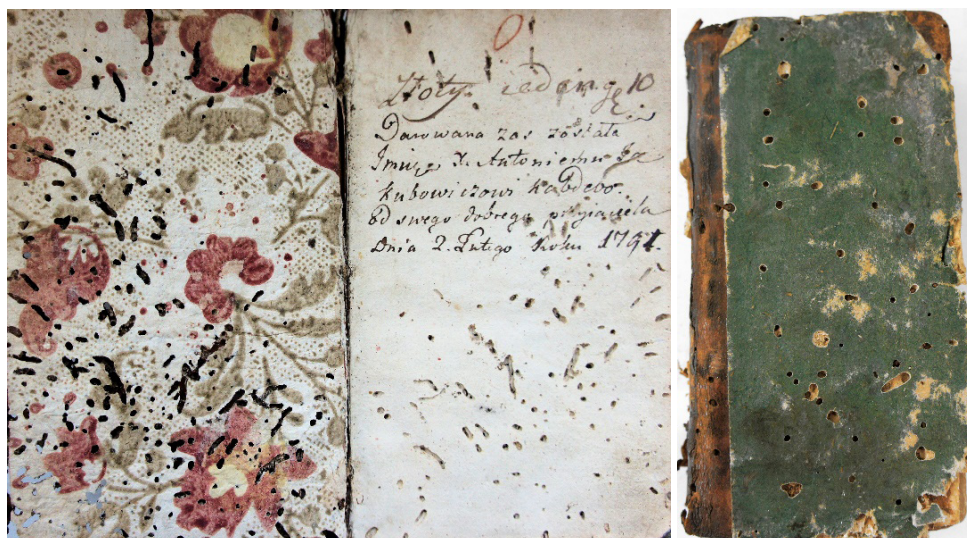 Złoty ieden g. 10
Darowana zas została
Antoniemu
kubowiczowi Kabdebo
Od swego dobrego przyiaciela
Dnia 2. Lutego Roku 1791.